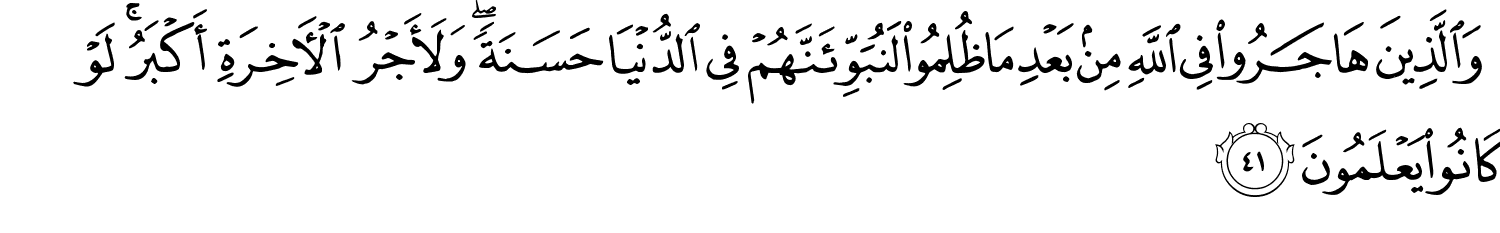 وَٱلَّذِينَ هَاجَرُوا۟ فِى ٱللَّهِ مِنۢ بَعْدِ مَا ظُلِمُوا۟ لَنُبَوِّئَنَّهُمْ فِى ٱلدُّنْيَا حَسَنَةً ۖ وَلَأَجْرُ ٱلْـَٔاخِرَةِ أَكْبَرُ ۚ لَوْ
كَانُوا۟ يَعْلَمُونَ ٤١